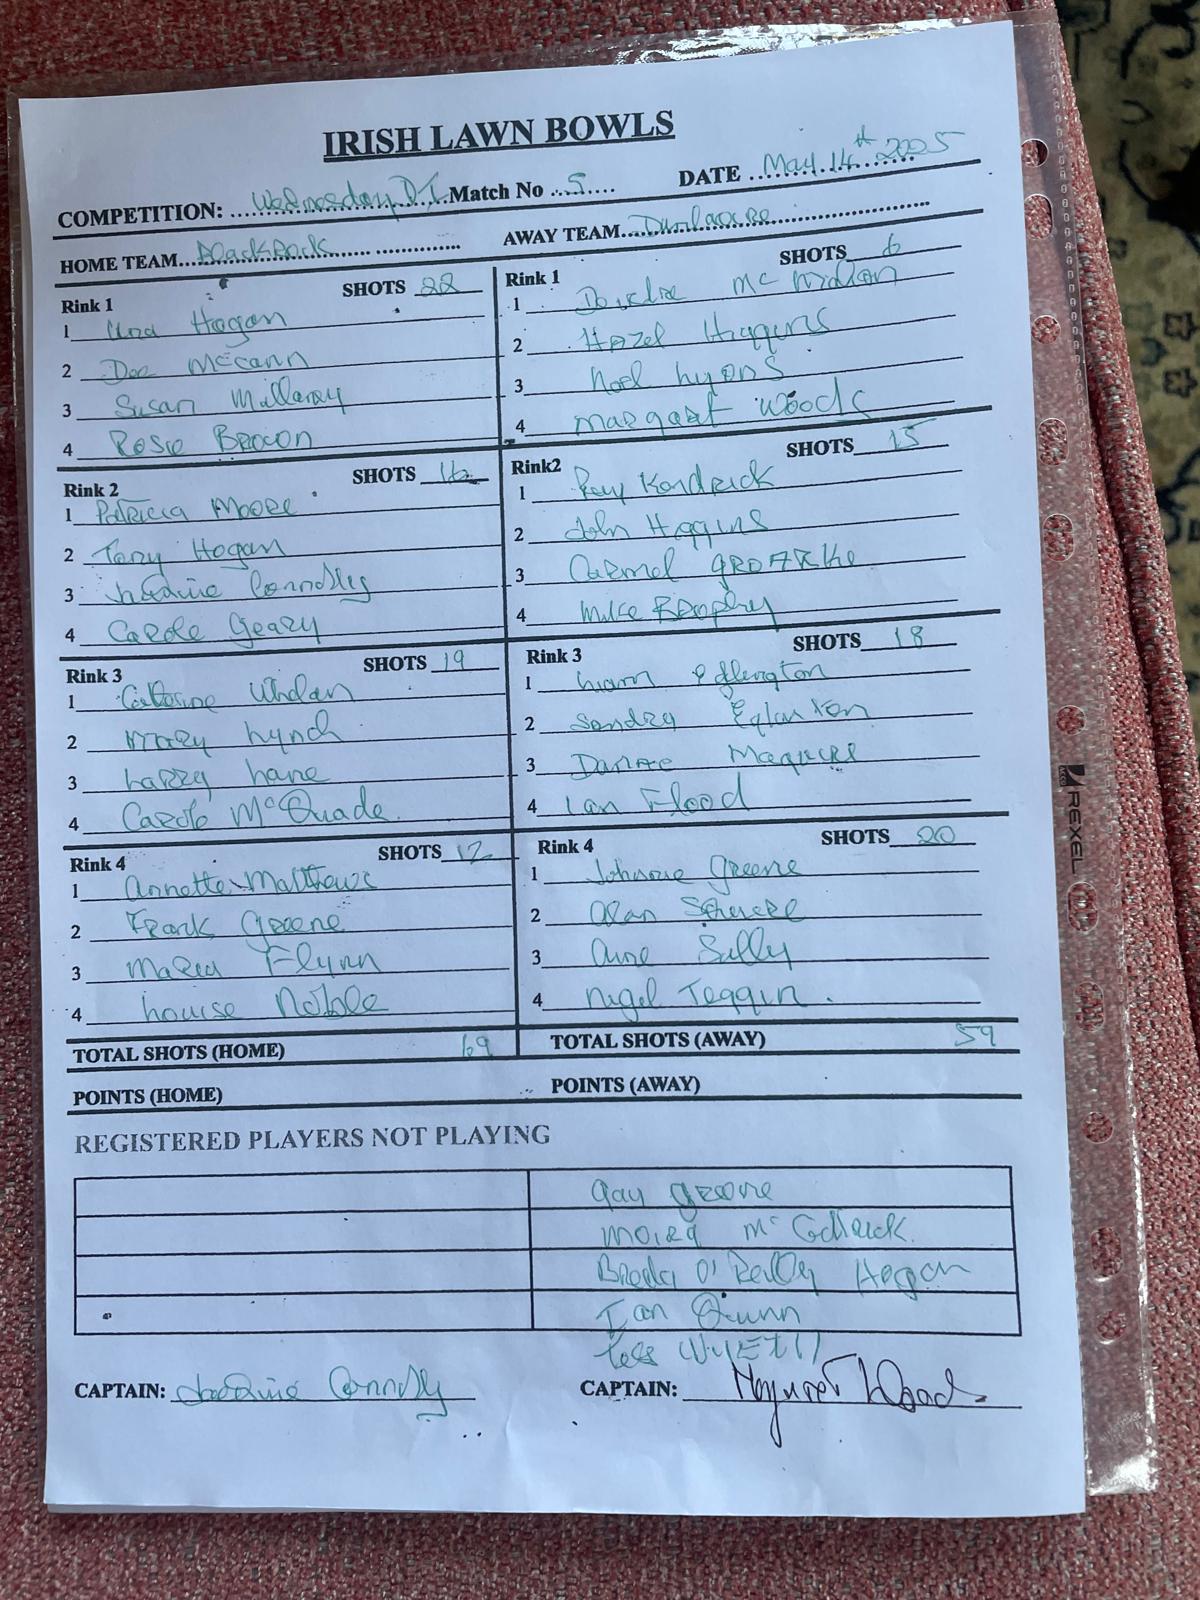 IRISH LAWN BOWLS
COMPETITION: Wednesday D/1 Match No 5 DATE May 14th 2025
HOME TEAM Blackrock AWAY TEAM Dunlaoire
Rink 1 SHOTS 22
1 Una Hogan
2 Dee McCann
3 Susan Mullarny
4 Rosie Brocon
Rink 1 SHOTS 6
1 Deirdre Mc
2 Hazel Higgins
3 Noel Lyons
4 Margaret Woods
Rink 2 SHOTS 16
1 Patricia Moore
2 Tony Hogan
3 Connolly
4 Carole Geary
Rink2 SHOTS 15
1 Kendrick
2 John Higgins
3 Carmel GROARKE
4 Mike Brophy
Rink 3 SHOTS 19
1 Catherine Whelan
2 Mary Lynch
3 Larry Lane
4 Carole McQuade
Rink 3 SHOTS 18
1 Liam
2 Sandra
3 Maguire
4 Ian Flood
Rink 4 SHOTS 12
1 Annette Matthews
2 Frank Greene
3 Maria Flynn
4 Louise Noble
Rink 4 SHOTS 20
1 Johnnie Greene
2 Alan
3 Anne
4 Nigel Teggin.
TOTAL SHOTS (HOME) 69 TOTAL SHOTS (AWAY) 59
POINTS (HOME) POINTS (AWAY)
REGISTERED PLAYERS NOT PLAYING
Gay Greene
Moira Mc
Breda O'Reilly Hogan
Ian Quinn
CAPTAIN: Connolly CAPTAIN: Margaret Woods
REXEL